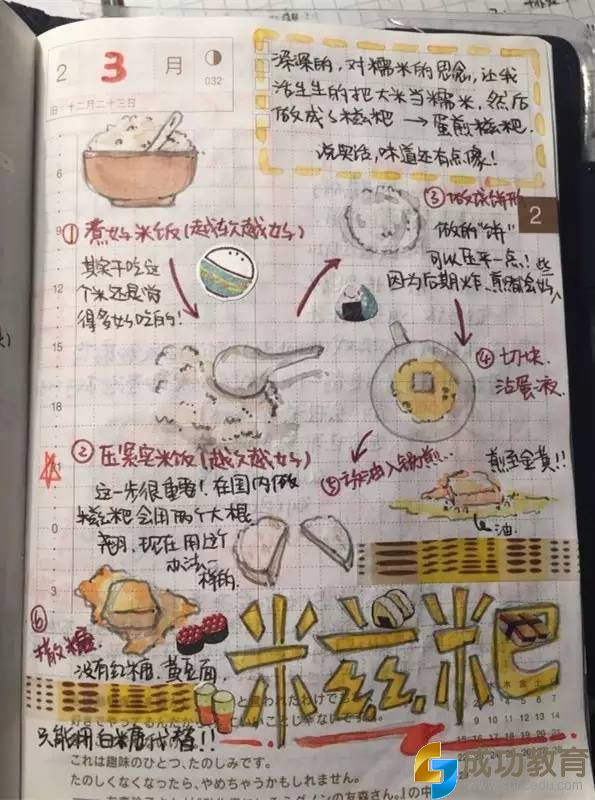 2 3 月
032
旧:十二月二十三日
深深的,对糯米的思念,让我
活生生的把大米当糯米,然后
做成了糍粑→蛋煎糍粑.
说实话,味道还有点像!
6
9
12
15
18
0
3
2
① 煮好米饭(越软越好)
其实干吃这
个米还是觉
得多好吃的!
③ 做成饼形
做的“饼”
可以压平一点!
因为后期炸.煎都会好
些
④ 切块.
沾蛋液.
② 压紧实米饭(越欠越好)
这一步很重要!在国内做
糍粑会用两个大棍
现在用这个
办法一
样的.
⑤ 油入锅煎...
煎至金黄!!
油.
⑥
撒糖.
没有红糖.黄豆面.
只能用白糖代替!!
糍粑
と言われたわけで
これは趣味のひとつ、たのしみです。
たのしくなくなったら、やめちゃうかもしれません。
成功教育